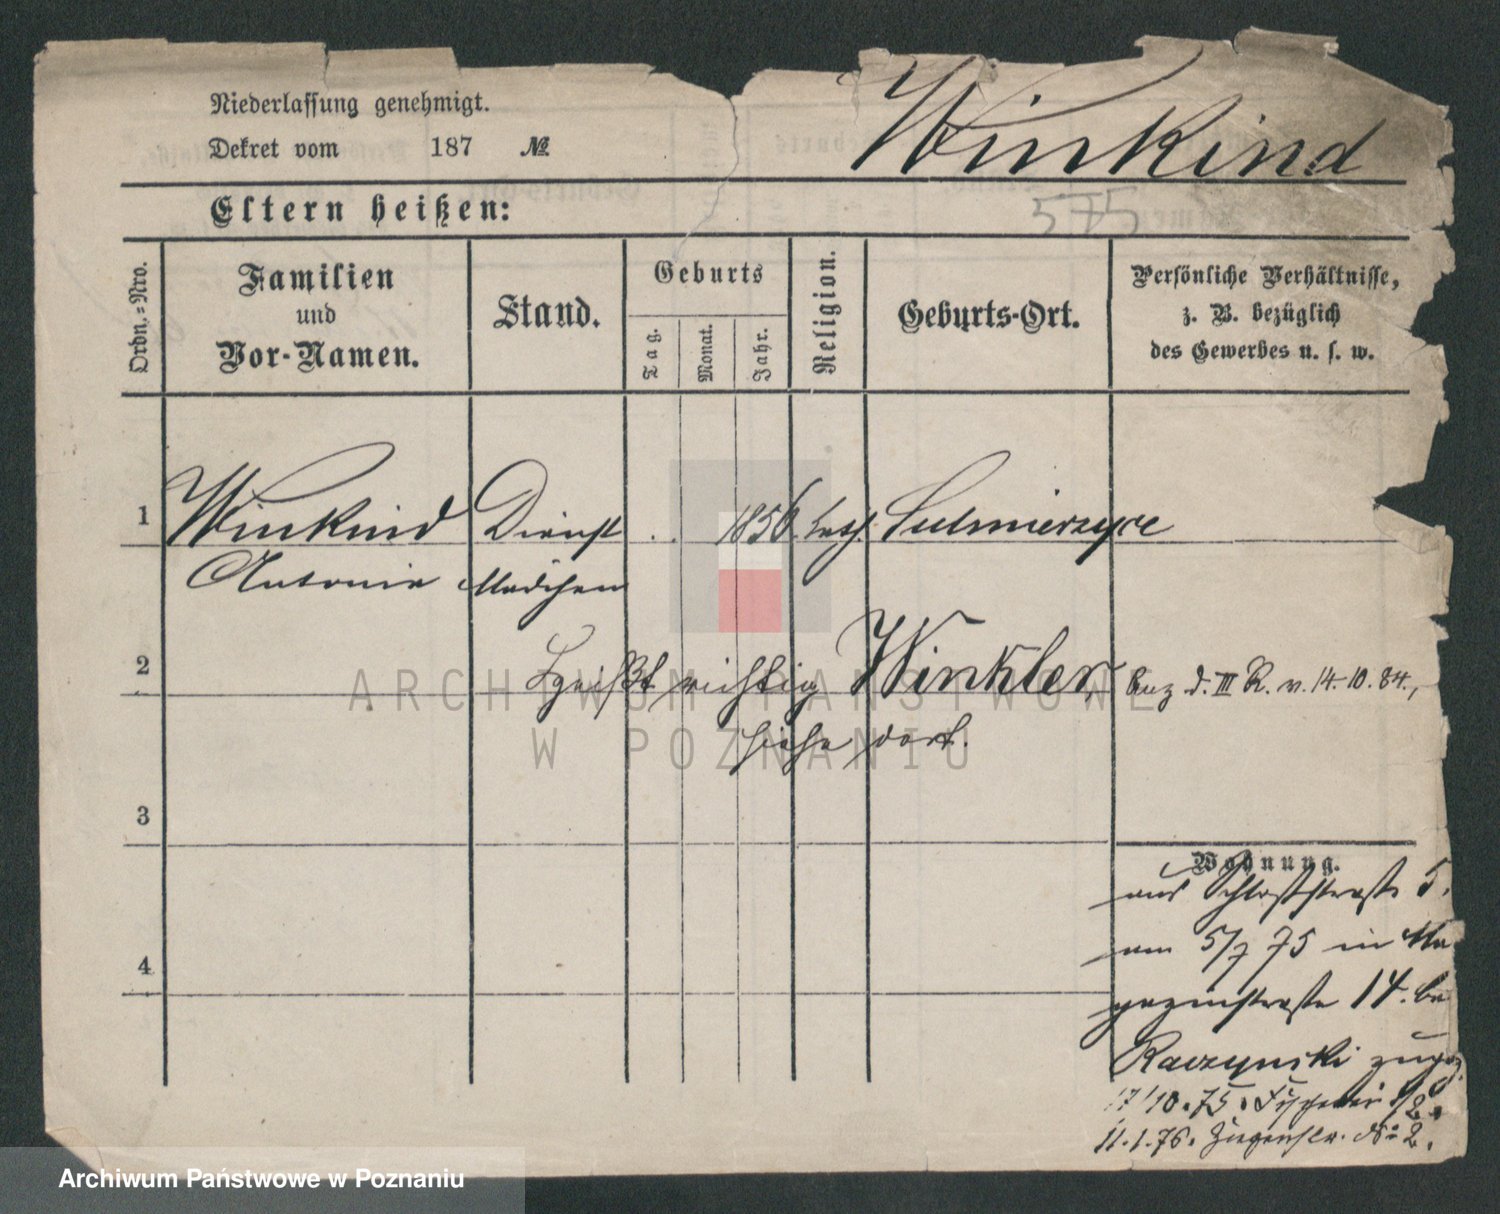 Niederlassung genehmigt.
Dekret vom 187 №
Winkind
Eltern heißen:
575
Ordn.=Nro.
Familien
und
Vor-Namen.
Stand.
Geburts
Tag.
Monat.
Jahr.
Religion.
Geburts-Ort.
Persönliche Verhältnisse,
z. B. bezüglich
des Gewerbes u. s. w.
1 Winkind Dienst . . 1856 kath. Sulmierzyce
Antonie Mädchen
2 heißt richtig Winkler, d. III R. v. 14.10.84.,
siehe dort.
ARCHIWUM PAŃSTWOWE
W POZNANIU
3
Wohnung.
aus Schloßstraße 5.
am 5/7 75 in Ma
4
gazinstraße 14. be
Raczynski zugez.
17/10.75. Fischerei
11.1.76. Ziegenstr. № 2.
Archiwum Państwowe w Poznaniu